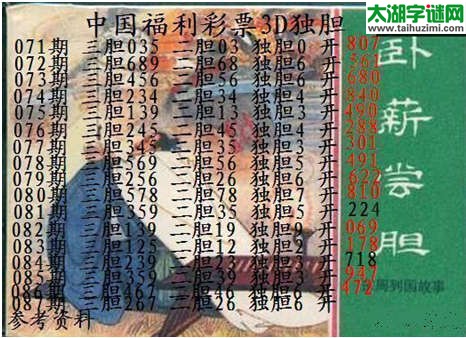 太湖字谜网
www.taihuzimi.com
中国福利彩票3D独胆
071期 三胆035 二胆03 独胆0 开807
072期 三胆689 二胆68 独胆6 开561
073期 三胆456 二胆56 独胆6 开680
074期 三胆234 二胆34 独胆4 开840
075期 三胆139 二胆13 独胆3 开490
076期 三胆245 二胆45 独胆4 开288
077期 三胆345 二胆35 独胆3 开301
078期 三胆569 二胆56 独胆5 开491
079期 三胆256 二胆26 独胆6 开622
080期 三胆578 二胆78 独胆7 开810
081期 三胆359 二胆35 独胆5 224
082期 三胆139 二胆19 独胆9 开069
083期 三胆125 二胆12 独胆2 开178
084期 三胆 二胆23 独胆 开718
085期 三胆 二胆39 独胆3 开947
086期 三胆 二胆 独胆 开472
087期 三胆267 二胆26 独胆6 开
参考资料
卧薪尝胆
周列国故事